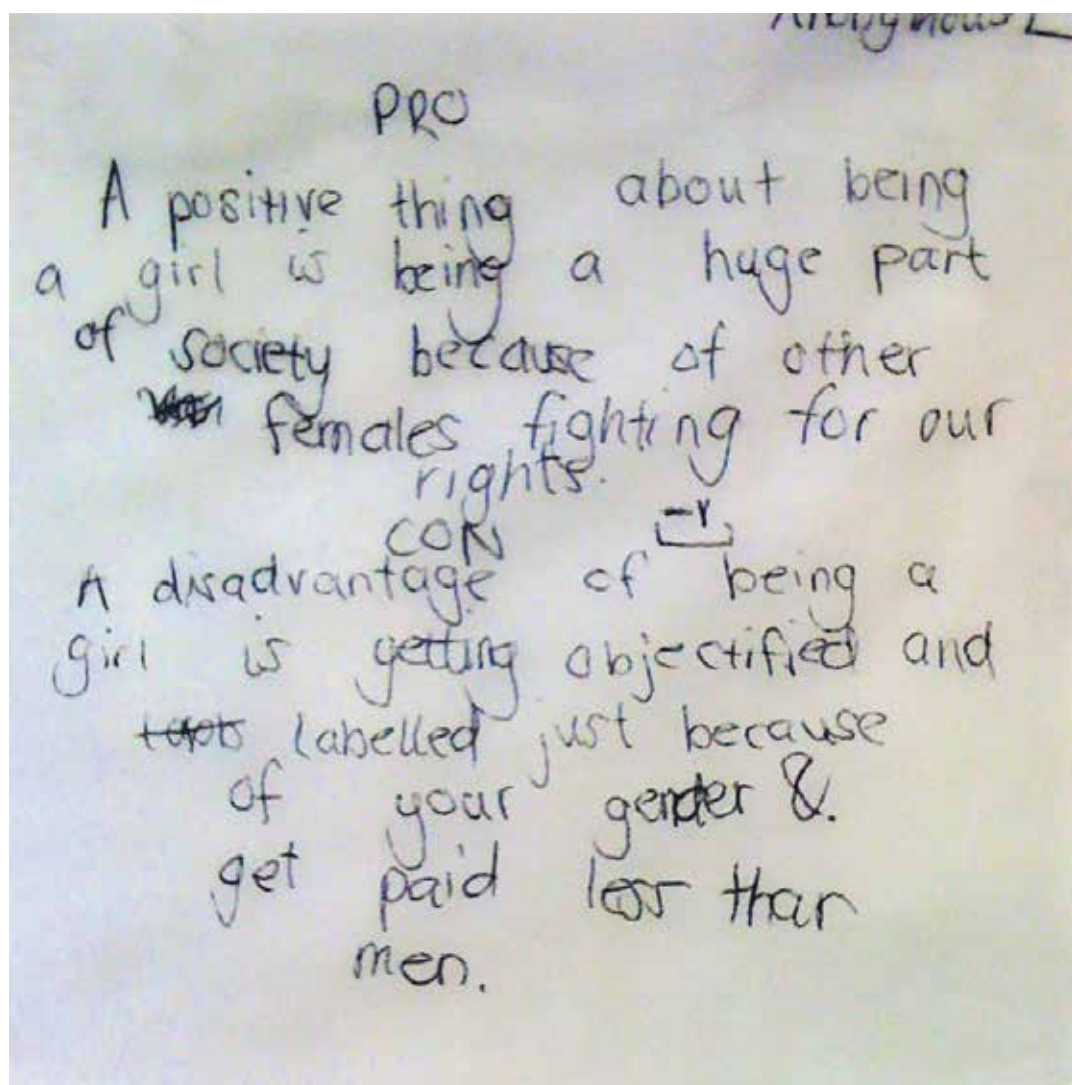 Anonymous
PRO
A positive thing about being
a girl is being a huge part
of society because of other
females fighting for our
rights.
CON
A disadvantage of being a
girl is getting objectified and
labelled just because
of your gender &.
get paid less than
men.